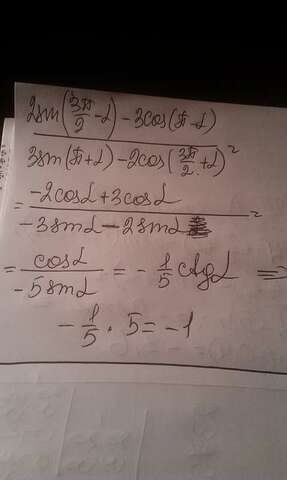 2sin(3π/2 - α) - 3cos(π - α)
3sin(π + α) - 2cos(3π/2 + α) =
= -2cosα + 3cosα
-3sinα - 2sinα =
= cosα / -5sinα = - 1/5 ctgα =>
- 1/5 · 5 = -1